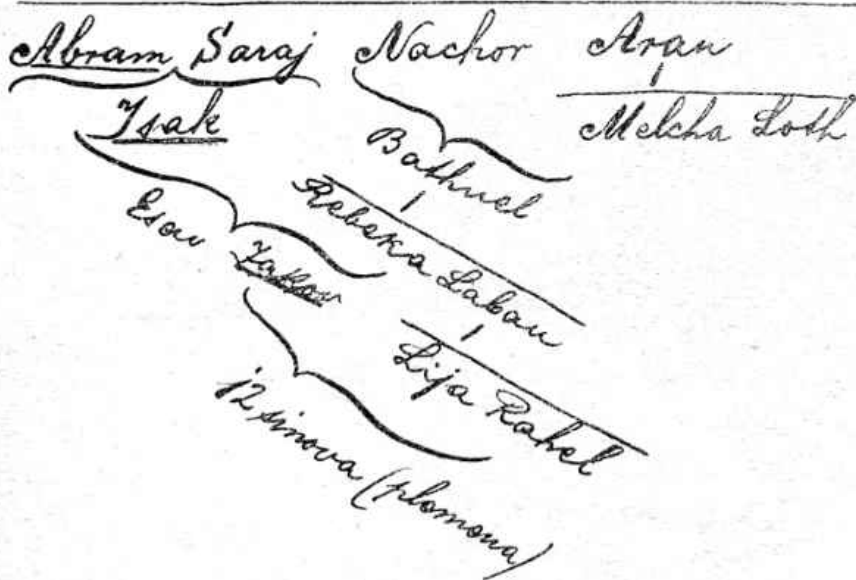 Abram Saraj Nachor Aran
Isak
Melcha Loth
Bathuel
Rebeka Laban
Esau Jakov
Lija Rahel
12 sinova (plemena)